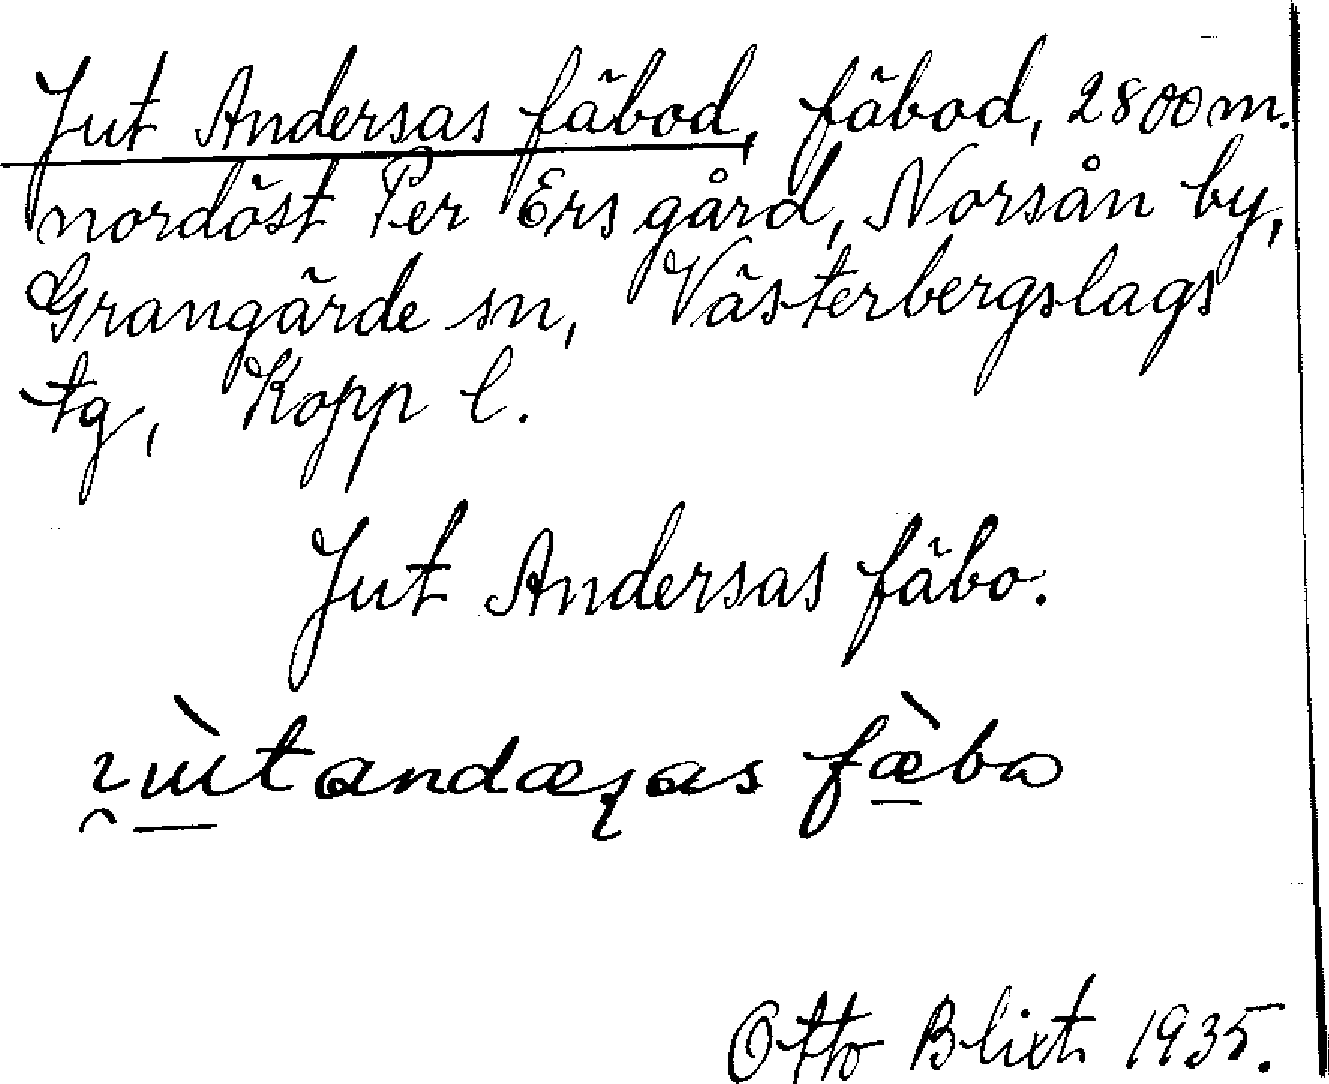 Jut Andersas fäbod, fäbod, 2800 m.
nordöst Per Ers gård, Norsån by,
Grangärde sn, Västerbergslags
tg, Kopp l.
Jut Andersas fäbo.
fæ̀bɷ
Otto Blixt 1935.